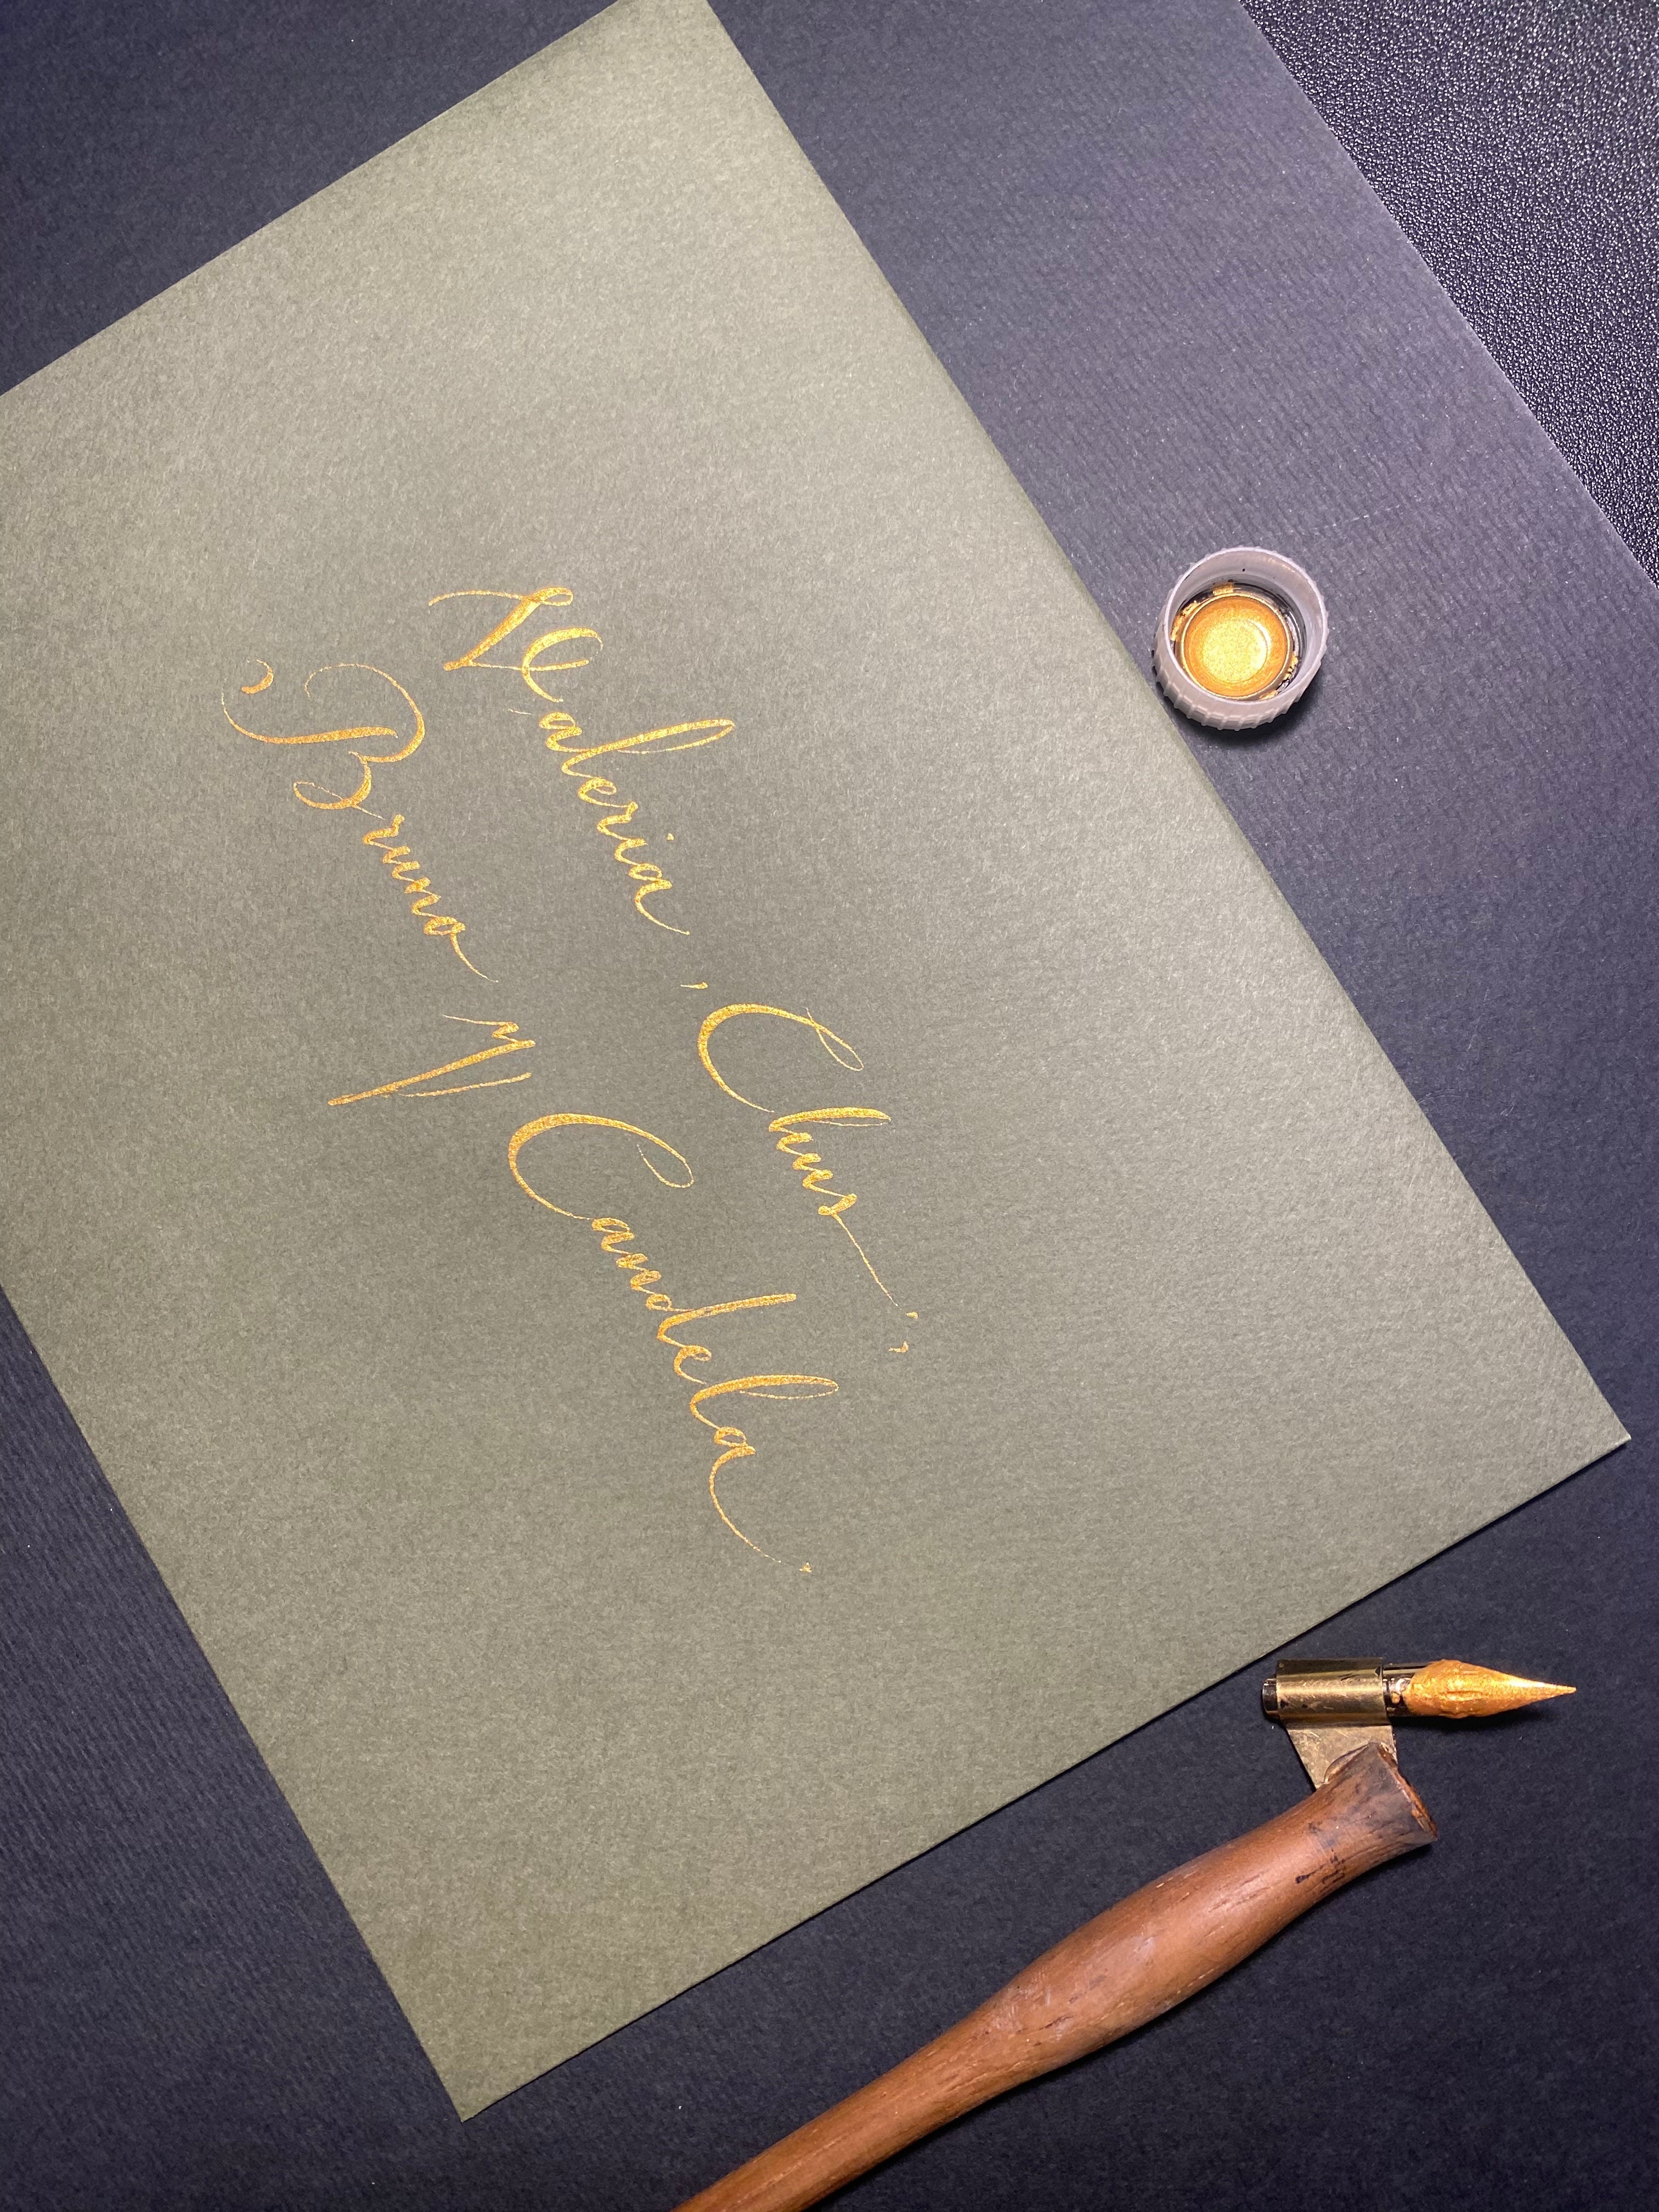 Valeria, Chus,
Bruno y Candela